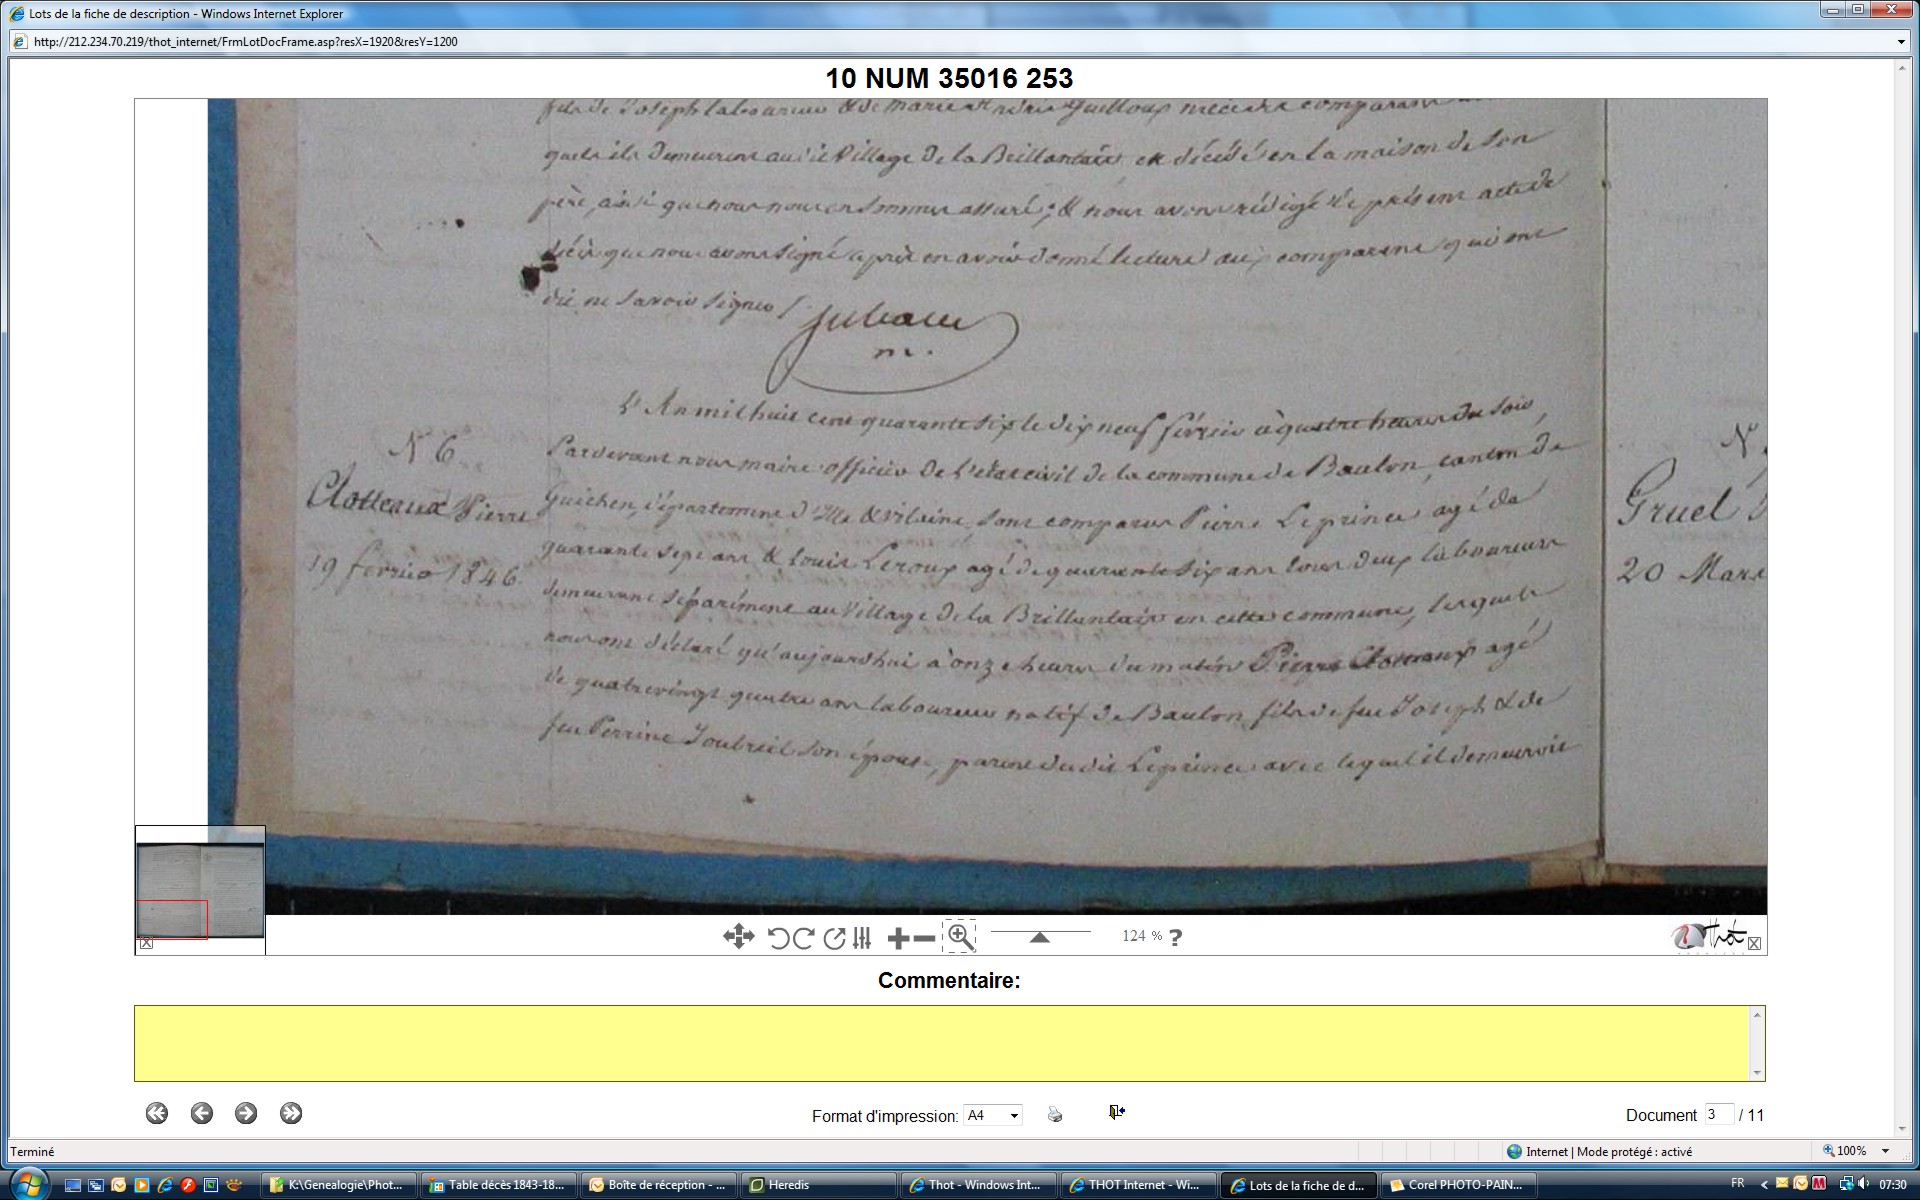 Lots de la fiche de description - Windows Internet Explorer
http://212.234.70.219/thot_internet/FrmLotDocFrame.asp?resX=1920&resY=1200
10 NUM 35016 253
fils de Joseph laboureur & de marie Guilloux comparant
quels ils demeurent au dit Village de la Brillantais, est décédé en la maison de son
père, ainsi que nous nous en sommes assuré; & nous avons rédigé le présent acte de
décès que nous avons signé après en avoir donné lecture aux comparens qui ont
dit ne savoir signer /
m.
L'An mil huit cent quarante six le dix neuf février à quatre heures du soir,
Pardevant nous maire officier de l'état civil de la commune de Baulon, canton de
Guichen, département d'Ille & Vilaine, sont comparus Pierre Leprince agé de
quarante sept ans & Louis Leroux agé de quarante six ans tous deux laboureurs
demeurant séparément au Village de la Brillantais en cette commune, lesquels
nous ont déclaré qu'aujourdhui à onze heures du matin Pierre Clotteaux agé
de quatrevingt quatre ans laboureur natif de Baulon, fils de feu Joseph & de
feu Perrine Joubriel son épouse, parent du dit Leprince avec lequel il demeuroit
N 6
Clotteaux Pierre
19 février 1846
N
Gruel
20 Mars
124 % ?
Thot
Commentaire:
Format d'impression: A4
Document 3 / 11
Terminé
Internet | Mode protégé : activé
100%
K:\Genealogie\Phot...
Table décès 1843-18...
Boîte de réception - ...
Heredis
Thot - Windows Int...
THOT Internet - Wi...
Lots de la fiche de d...
Corel PHOTO-PAIN...
FR
07:30